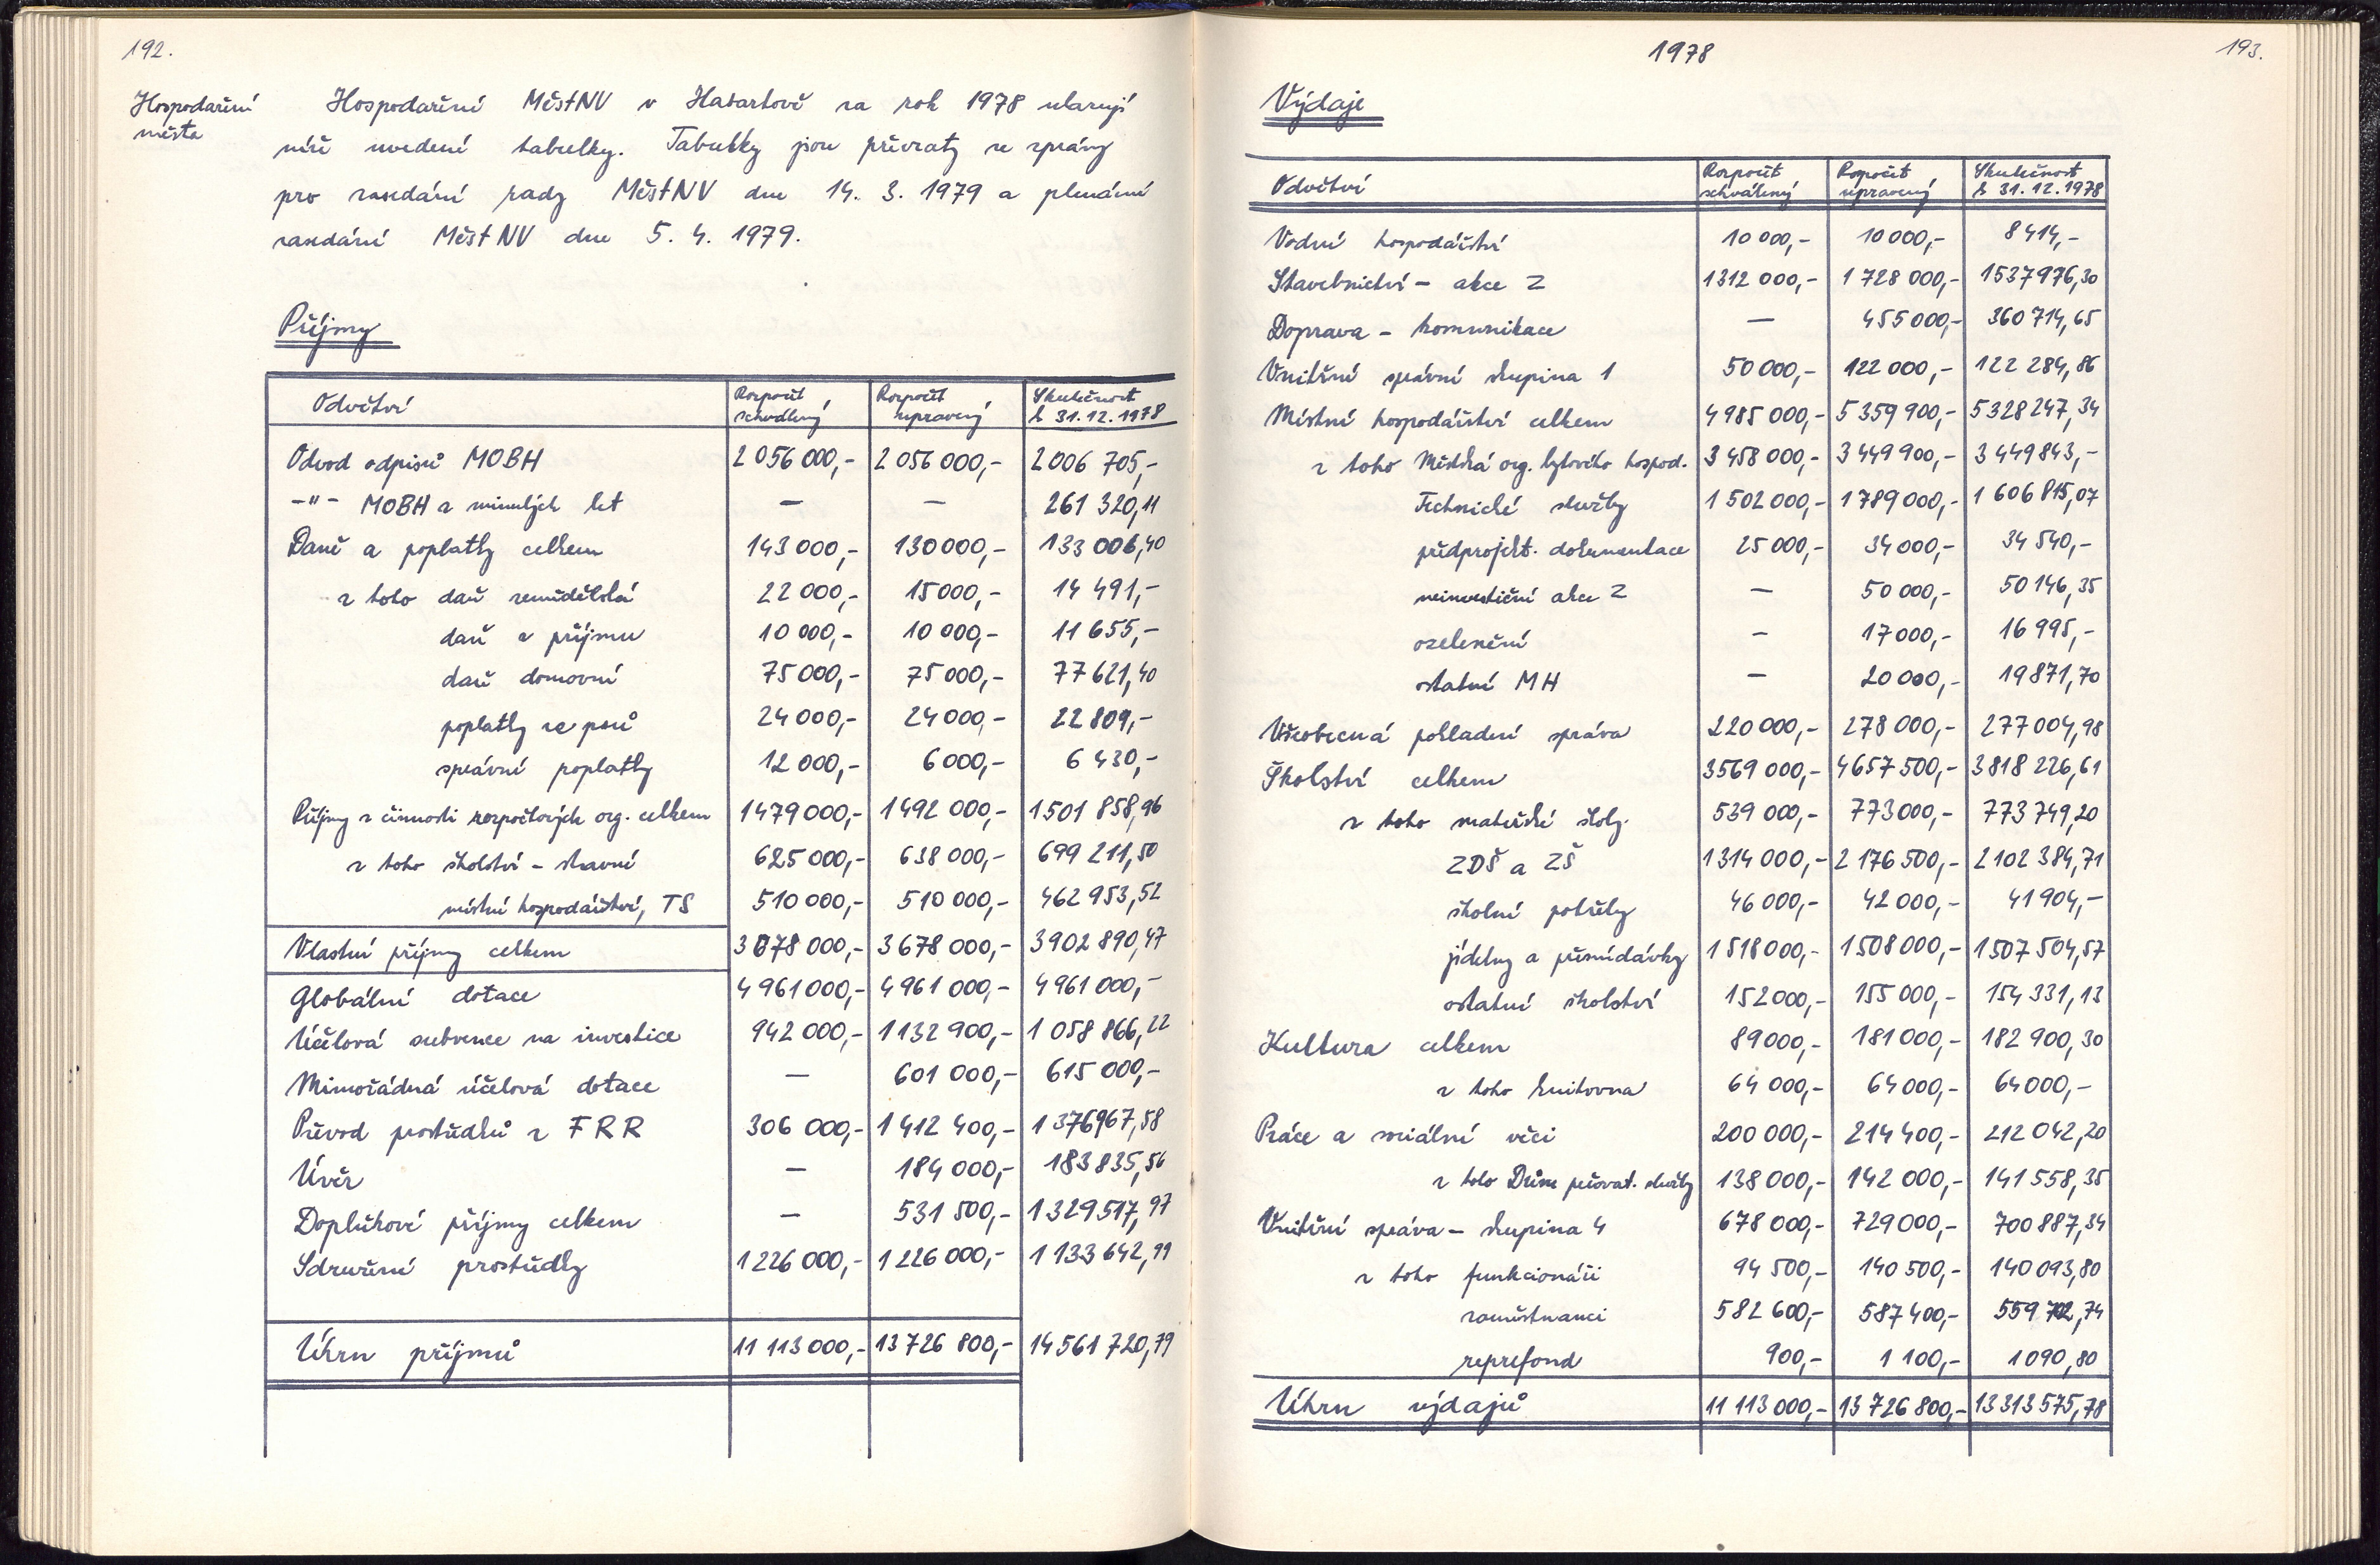 192.
Hospodaření
města
Hospodaření MěstNV v Habartově za rok 1978 ukazují
níže uvedené tabulky. Tabulky jsou převzaty ze zprávy
pro zasedání rady MěstNV dne 14. 3. 1979 a plenární
zasedání MěstNV dne 5. 4. 1979.
Příjmy
Odvětví Rozpočet schválený Rozpočet upravený Skutečnost k 31.12.1978
Odvod odpisů MOBH 2 056 000,- 2 056 000,- 2 006 705,-
-"- MOBH z minulých let — — 261 320,11
Daně a poplatky celkem 143 000,- 130 000,- 133 006,40
z toho daň zemědělská 22 000,- 15 000,- 14 491,-
daň z příjmu 10 000,- 10 000,- 11 655,-
daň domovní 75 000,- 75 000,- 77 621,40
poplatky ze psů 24 000,- 24 000,- 22 809,-
správní poplatky 12 000,- 6 000,- 6 430,-
Příjmy z činnosti rozpočtových org. celkem 1 479 000,- 1 492 000,- 1 501 858,96
z toho školství - stravné 625 000,- 638 000,- 699 211,50
místní hospodářství, TS 510 000,- 510 000,- 462 953,52
Vlastní příjmy celkem 3 678 000,- 3 678 000,- 3 902 890,47
Globální dotace 4 961 000,- 4 961 000,- 4 961 000,-
Účelová subvence na investice 942 000,- 1 132 900,- 1 058 866,22
Mimořádná účelová dotace — 601 000,- 615 000,-
Převod prostředků z FRR 306 000,- 1 412 400,- 1 376 967,58
Úvěr — 184 000,- 183 835,56
Doplňkové příjmy celkem — 531 500,- 1 329 517,97
Sdružené prostředky 1 226 000,- 1 226 000,- 1 133 642,99
Úhrn příjmů 11 113 000,- 13 726 800,- 14 561 720,79
1978
193.
Výdaje
Odvětví Rozpočet schválený Rozpočet upravený Skutečnost k 31.12.1978
Vodní hospodářství 10 000,- 10 000,- 8 414,-
Stavebnictví - akce Z 1312 000,- 1 728 000,- 1537976,30
Doprava - komunikace — 455 000,- 360 714,65
Vnitřní správní skupina 1 50 000,- 122 000,- 122 284,86
Místní hospodářství celkem 4 985 000,- 5 359 900,- 5 328 247,34
z toho Městská org. bytového hospod. 3 458 000,- 3 449 900,- 3 449 843,-
Technické služby 1 502 000,- 1 789 000,- 1 606 815,07
předprojekt. dokumentace 25 000,- 34 000,- 34 540,-
neinvestiční akce Z — 50 000,- 50 146,35
ozelenění — 17 000,- 16 995,-
ostatní MH — 20 000,- 19 871,70
Všeobecná pokladní správa 220 000,- 278 000,- 277 004,98
Školství celkem 3569 000,- 4657 500,- 3818 226,61
z toho mateřské školy 539 000,- 773 000,- 773 749,20
ZDŠ a ZŠ 1 314 000,- 2 176 500,- 2 102 384,71
školní potřeby 46 000,- 42 000,- 41 904,-
jídelny a přesnídávky 1 518 000,- 1 508 000,- 1 507 504,57
ostatní školství 152 000,- 155 000,- 154 331,13
Kultura celkem 89 000,- 181 000,- 182 900,30
z toho knihovna 64 000,- 64 000,- 64 000,-
Práce a sociální věci 200 000,- 214 400,- 212 042,20
z toho Dům pečovat. služby 138 000,- 142 000,- 141 558,35
Vnitřní správa - skupina 4 678 000,- 729 000,- 700 887,34
z toho funkcionáři 94 500,- 140 500,- 140 093,80
zaměstnanci 582 600,- 587 400,- 559 702,74
reprefond 900,- 1 100,- 1 090,80
Úhrn výdajů 11 113 000,- 13 726 800,- 13 313 575,78